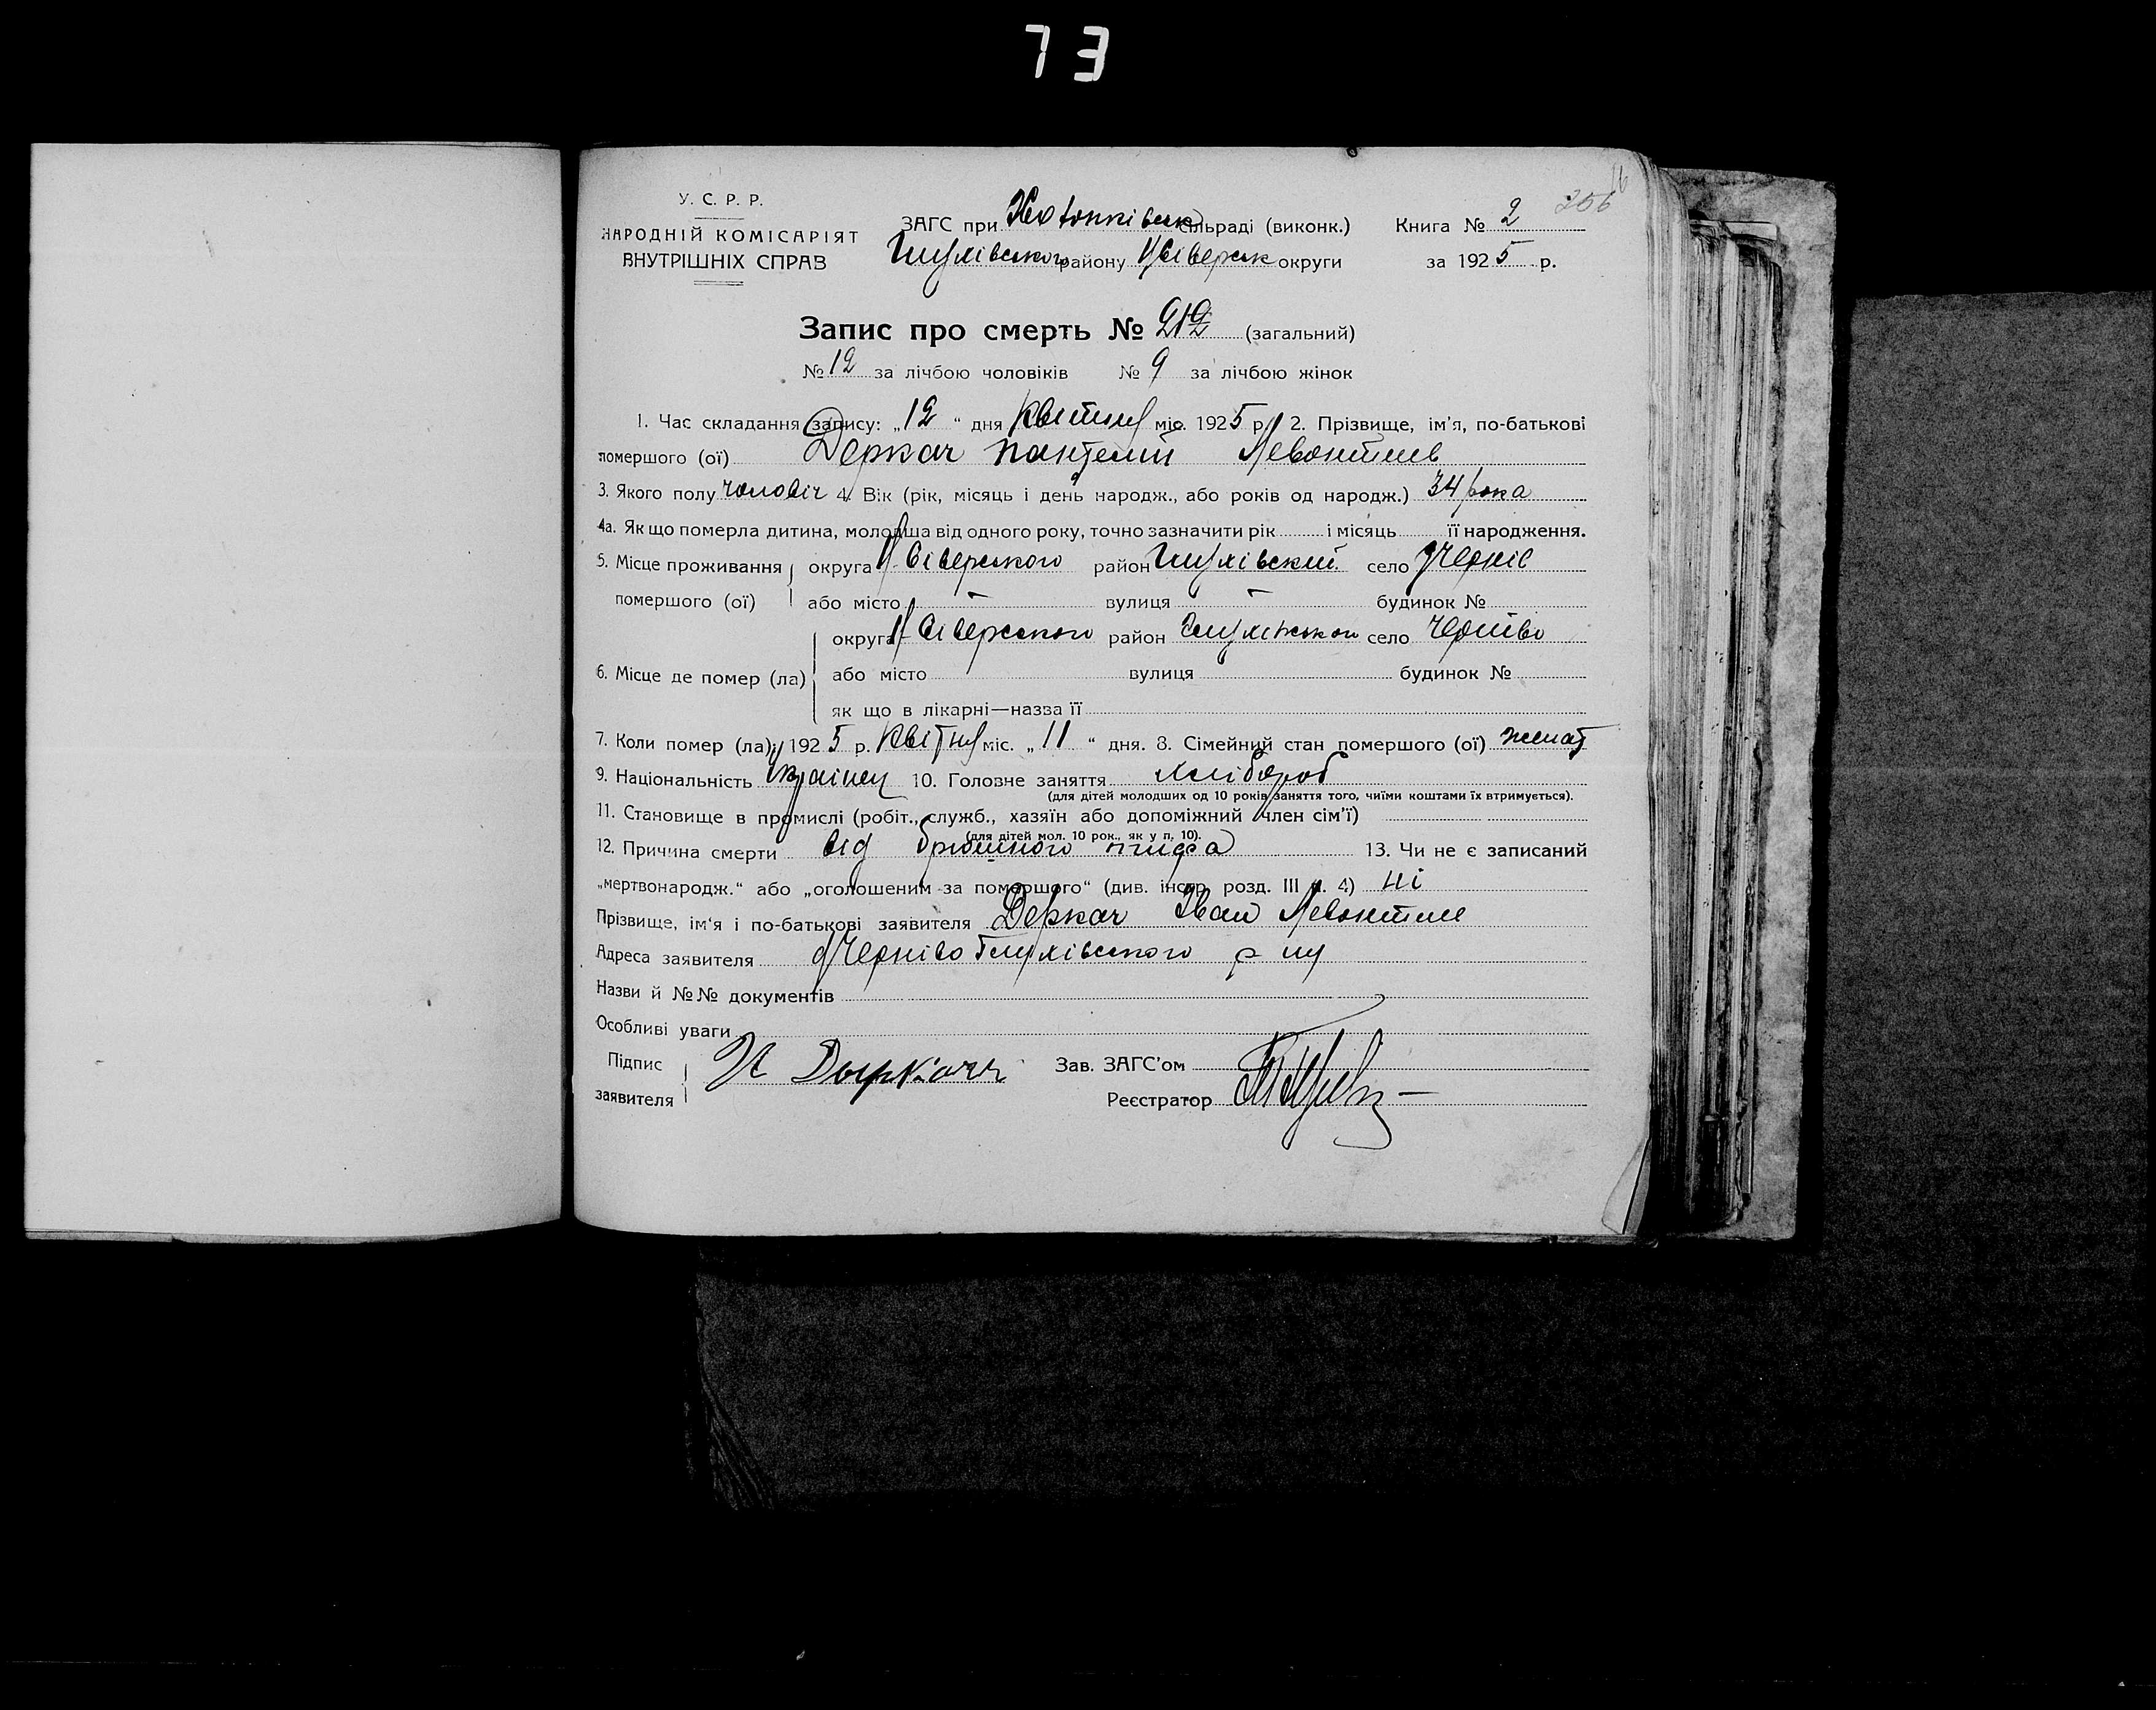 73
У. С. Р. Р.
НАРОДНІЙ КОМІСАРІЯТ
ВНУТРІШНІХ СПРАВ
ЗАГС при Хотьминівськ сільраді (виконк.)
Глухівського району Н/Сіверськ округи
Книга № 2 256
за 1925 р.
Запис про смерть № 212 (загальний)
№ 12 за лічбою чоловіків № 9 за лічбою жінок
1. Час складання запису: „12“ дня Квітня міс. 1925 р. 2. Прізвище, ім'я, по-батькові
помершого (ої) Деркач Пантелий Левонтиев
3. Якого полу чоловіч 4. Вік (рік, місяць і день народж., або років од народж.) 34 рока
4а. Як що померла дитина, молодша від одного року, точно зазначити рік і місяць її народження.
5. Місце проживання округа Н/Сіверського район Глухівский село
помершого (ої) або місто – вулиця – будинок №
округа Н/Сіверського район Глухівського село
6. Місце де помер (ла) або місто вулиця будинок №
як що в лікарні—назва її
7. Коли помер (ла) 1925 р. Квітня міс. „11“ дня. 8. Сімейний стан помершого (ої) женат
9. Національність Українец 10. Головне заняття хлібороб
(для дітей молодших од 10 років заняття того, чиїми коштами їх втримується).
11. Становище в промислі (робіт., служб., хазяїн або допоміжний член сім'ї)
(для дітей мол. 10 рок., як у п. 10).
12. Причина смерти від брюшного тифа 13. Чи не є записаний
„мертвонародж.“ або „оголошеним за помершого“ (див. інстр. розд. III п. 4) ні
Прізвище, ім'я і по-батькові заявителя Деркач Иван Левонтиев
Адреса заявителя Глухівського р-ну
Назви й №№ документів
Особливі уваги
Підпис
заявителя И Дыркачь
Зав. ЗАГС'ом
Реєстратор